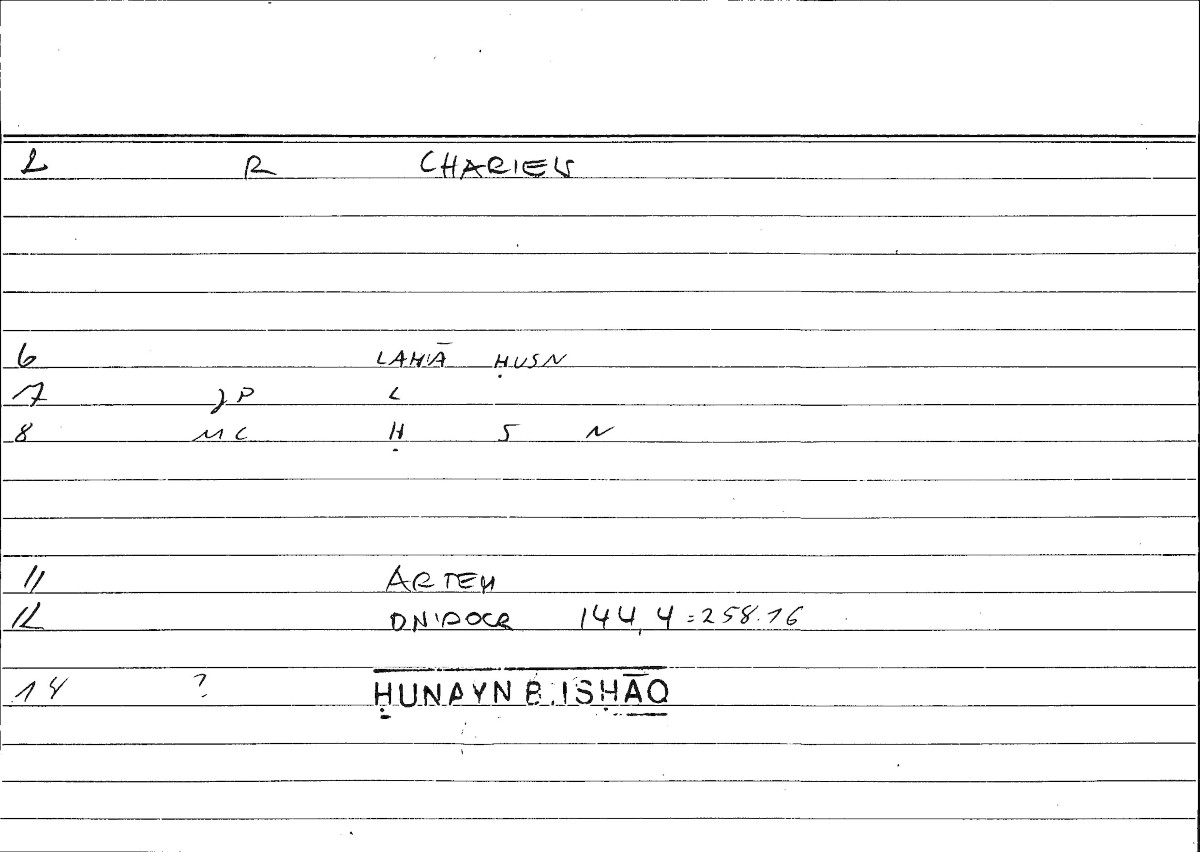 2 R CHARIEIS
6 LAHĀ ḤUSN
7 JP L
8 MC Ḥ S N
11 ARTEM
12 ONIROCR 144,4=258.16
14 ? ḤUNAYN B. ISḤĀQ